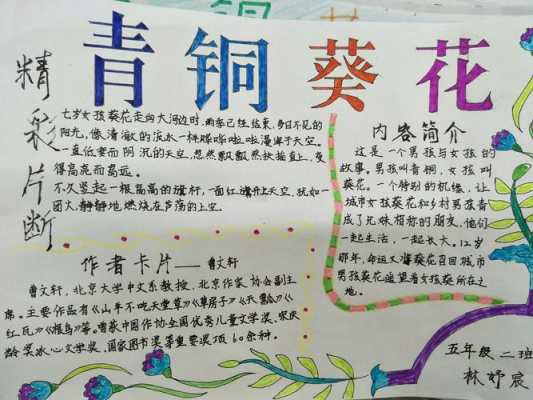 青铜葵花
精彩片断
七岁女孩葵花走向大河边时,雨季已经结束,多日不见的
阳光,像清澈的流水一样哗啦啦漫泻于天空。
一直低垂而阴沉的天空,忽然飘飘然扶摇直上,变
得高远而
不久竖起一根高高的旗杆,一面红旗升上天空,犹如一
团火,静静地燃烧在芦荡的上空.
作者卡片——曹文轩
曹文轩,北京大学中文系教授,北京作家协会副主
席。主要作品有《山羊不吃天堂草》《草房子》《天瓢》《
红瓦》《根鸟》等。曾获中国作协全国优秀儿童文学奖、宋庆
龄奖冰心文学奖、国家图书奖等重要奖项60余种。
内容简介
这是一个男孩与女孩的
故事。男孩叫青铜,女孩叫
葵花。一个特别的机缘,让
城市女孩葵花和乡村男孩青
成了兄妹相称的朋友,他们
一起生活,一起长大。12岁
那年,命运又将葵花召回城市
男孩葵花遥望着女孩葵所在之
地.
五年级二班
林妤宸